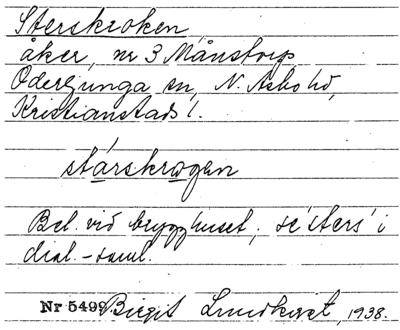 Sterskroken
åker, nr 3 Månstorp
Oderljunga sn, N. Åsbo hd,
Kristianstads l.
stárskrogen
Bel. vid brygghuset, se 'sters' i
dial.-saml.
Nr 5499 Birgit Lundkvist, 1938.